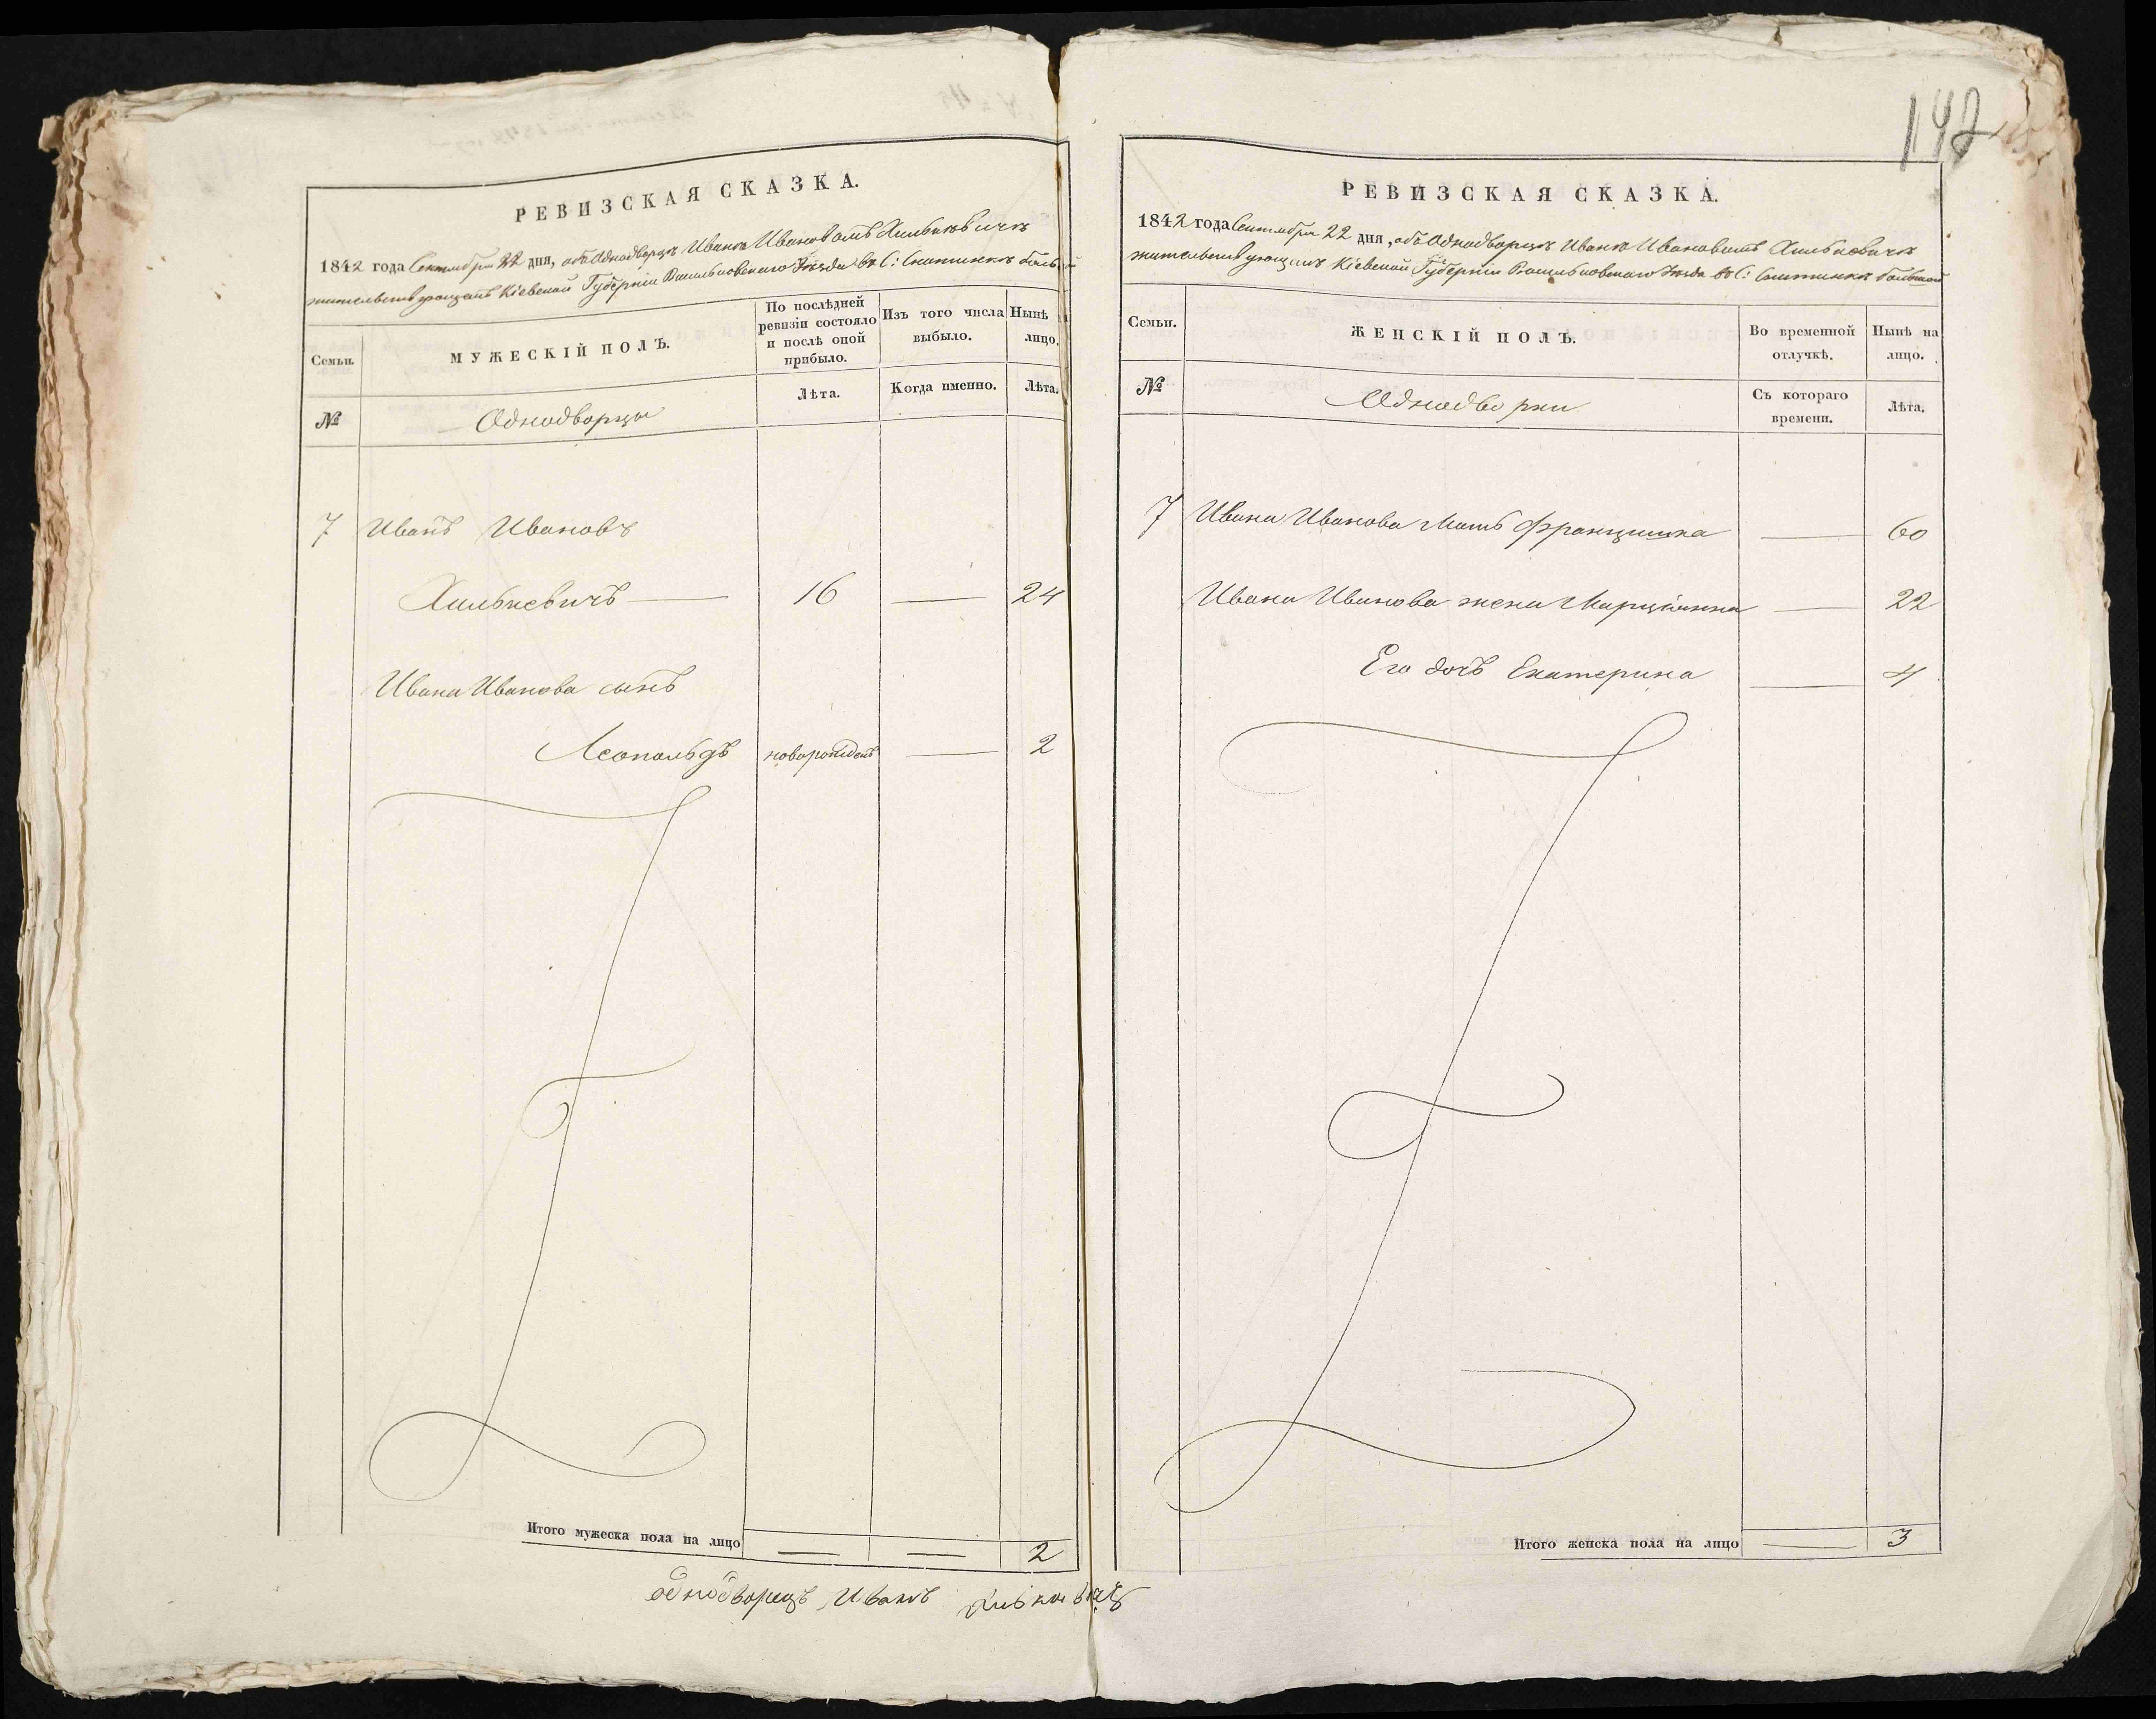 142
РЕВИЗСКАЯ СКАЗКА.
1842 года Сентября 22 дня, объ Однодворцѣ Иванѣ Ивановомъ Хилькевичѣ
жительствующемъ Кіевской Губерніи Васильковскаго Уѣзда въ С:
Семьи.
МУЖЕСКІЙ ПОЛЪ.
По послѣдней ревизіи состояло и послѣ оной прибыло.
Изъ того числа выбыло.
Нынѣ лицо.
№
Однодворцы
Лѣта.
Когда именно.
Лѣта.
7 Иванъ Ивановъ
Хилькевичъ — 16 — 24
Ивана Иванова сынъ
Леопольдъ новорожденъ — 2
Итого мужеска пола на лицо — — 2
однодворецъ Иванъ
РЕВИЗСКАЯ СКАЗКА.
1842 года Сентября 22 дня, объ Однодворцѣ Иванѣ Ивановомъ Хилькевичѣ
жительствующемъ Кіевской Губерніи Васильковскаго Уѣзда въ С:
Семьи.
ЖЕНСКІЙ ПОЛЪ.
Во временной отлучкѣ.
Нынѣ на лицо.
№
Однодворки
Съ котораго времени.
Лѣта.
7 Ивана Иванова Мать Францишка — 60
Ивана Иванова жена Марціанна — 22
Его дочь Екатерина — 4
Итого женска пола на лицо — 3